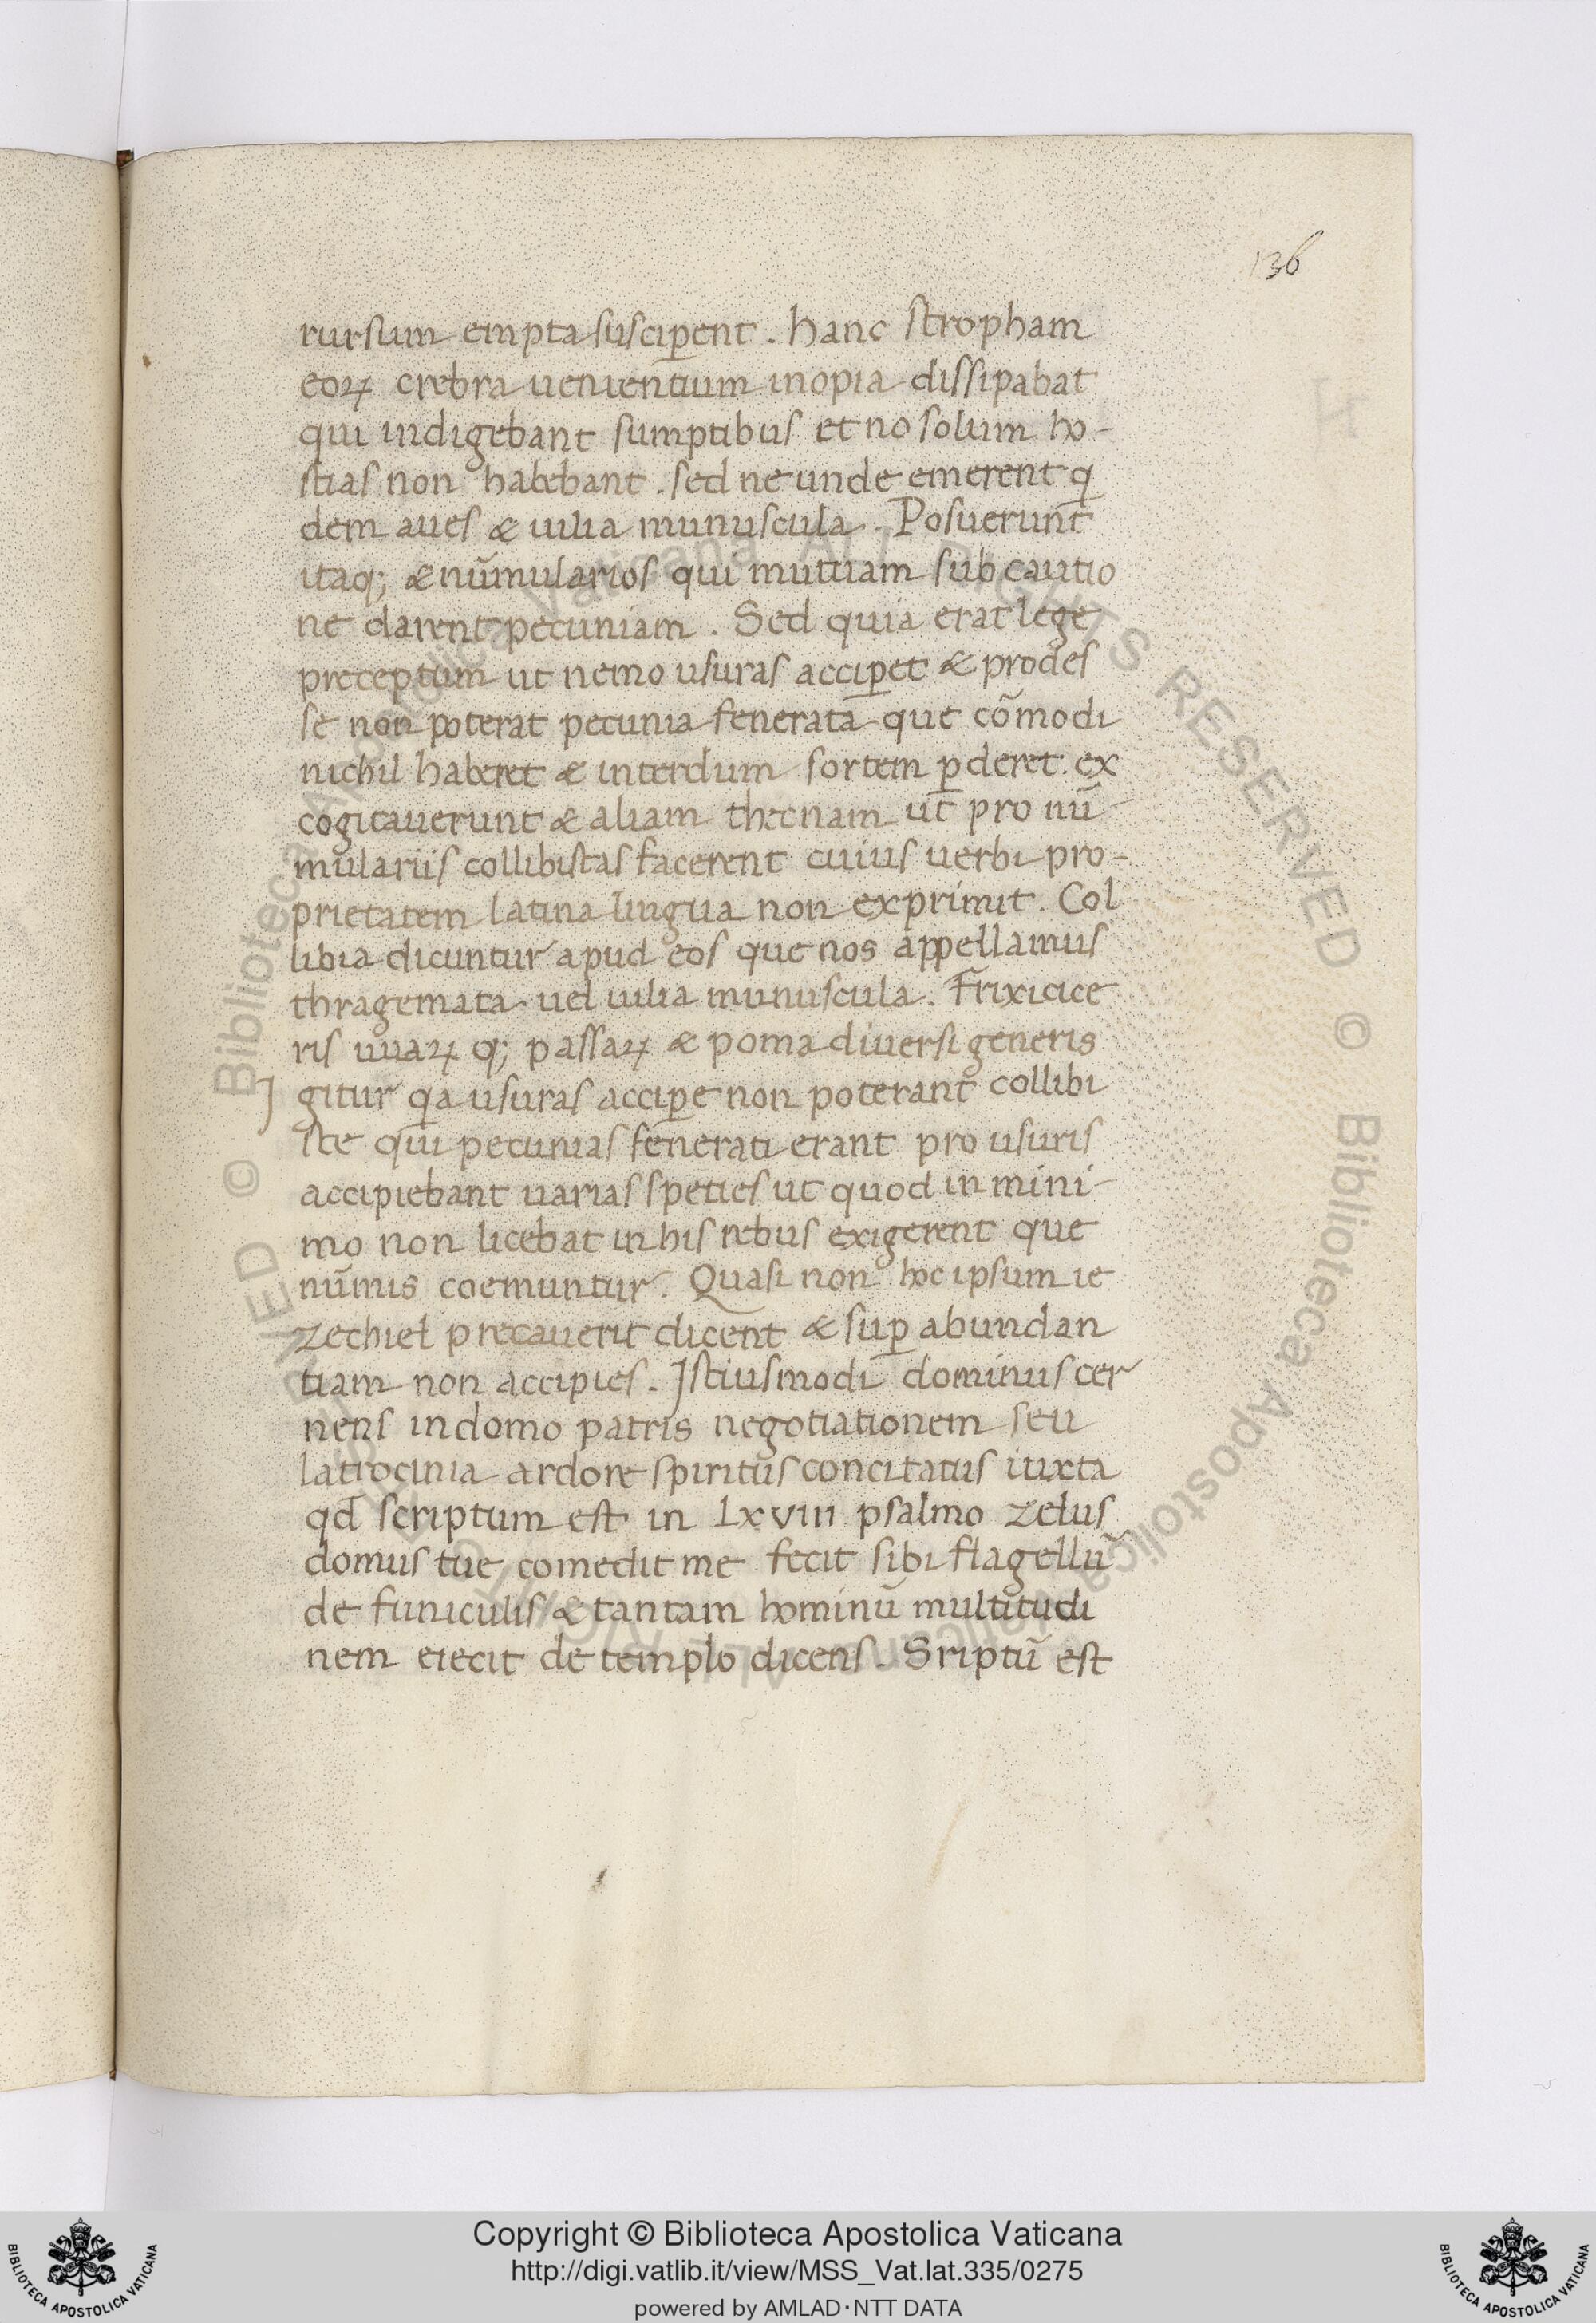 136
rursum empta susciꝑent . hanc stropham
eoꝝ crebra uenientium inopia dissipabat
qui indigebant sumptibus et no solum ho-
stias non habebant . sed ne unde emerent q
dem aues & uilia munuscula . Posuerunt
itaq; & nūmularios qui mutuam sub cautio
ne darent pecuniam . Sed quia erat lege
preceptum ut nemo usuras acciꝑet & prodes
se non poterat pecunia fenerata que cōmodi
nichil haberet & interdum sortem ꝑderet . ex
cogitauerunt & aliam thecnam ut pro nū
mulariis collibistas facerent cuius uerbi pro-
prietatem latina lingua non exprimit . Col
libia dicuntur apud eos que nos appellamus
thragemata uel uilia munuscula . Frixi cice
ris uuaꝝ q; passaꝝ & poma diuersi generis
Igitur qa usuras acciꝑe non poterant collibi
ste qui pecunias fenerati erant pro usuris
accipiebant uarias speties ut quod in mini-
mo non licebat in his rebus exigerent que
nūmis coemuntur . Quasi non hoc ipsum ie
zechiel precauerit dicent & suꝑ abundan
tiam non accipies . Istiusmodi dominus cer
nens in domo patris negotiationem seu
latrocinia ardore spiritus concitatus iuxta
qd scriptum est in lxviii psalmo zelus
domus tue comedit me fecit sibi flagellū
de funiculis & tantam hominū multitudi
nem eiecit de templo dicens . Sriptū est
© Biblioteca Apostolica Vaticana ALL RIGHTS RESERVED © Biblioteca Apostolica Vaticana ALL RIGHTS RESERVED
Copyright © Biblioteca Apostolica Vaticana
http://digi.vatlib.it/view/MSS_Vat.lat.335/0275
powered by AMLAD·NTT DATA
BIBLIOTECA APOSTOLICA VATICANA
BIBLIOTECA APOSTOLICA VATICANA